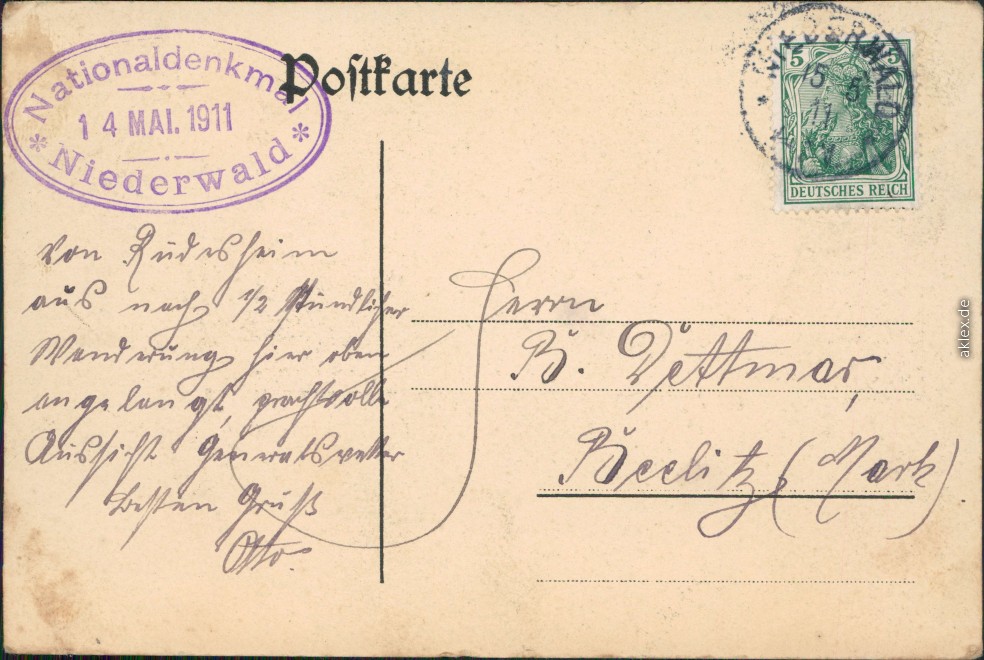 Nationaldenkmal
14 MAI. 1911
* Niederwald *
Postkarte
NIEDERWALD
15 5
11
5
DEUTSCHES REICH
Von Rüdesheim
aus nach 1/2 stündlicher
Wanderung hier oben
angelangt, prachtvolle
Aussicht
besten Gruß
Otto.
Herrn
B. Dettmar,
Beelitz (Mark)
aklex.de